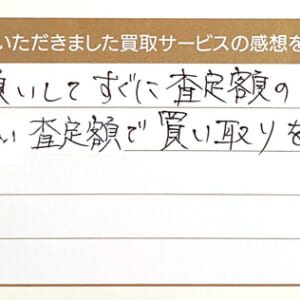 いただきました買取サービスの感想を
願いしてすぐに査定額の
い査定額で買い取りを